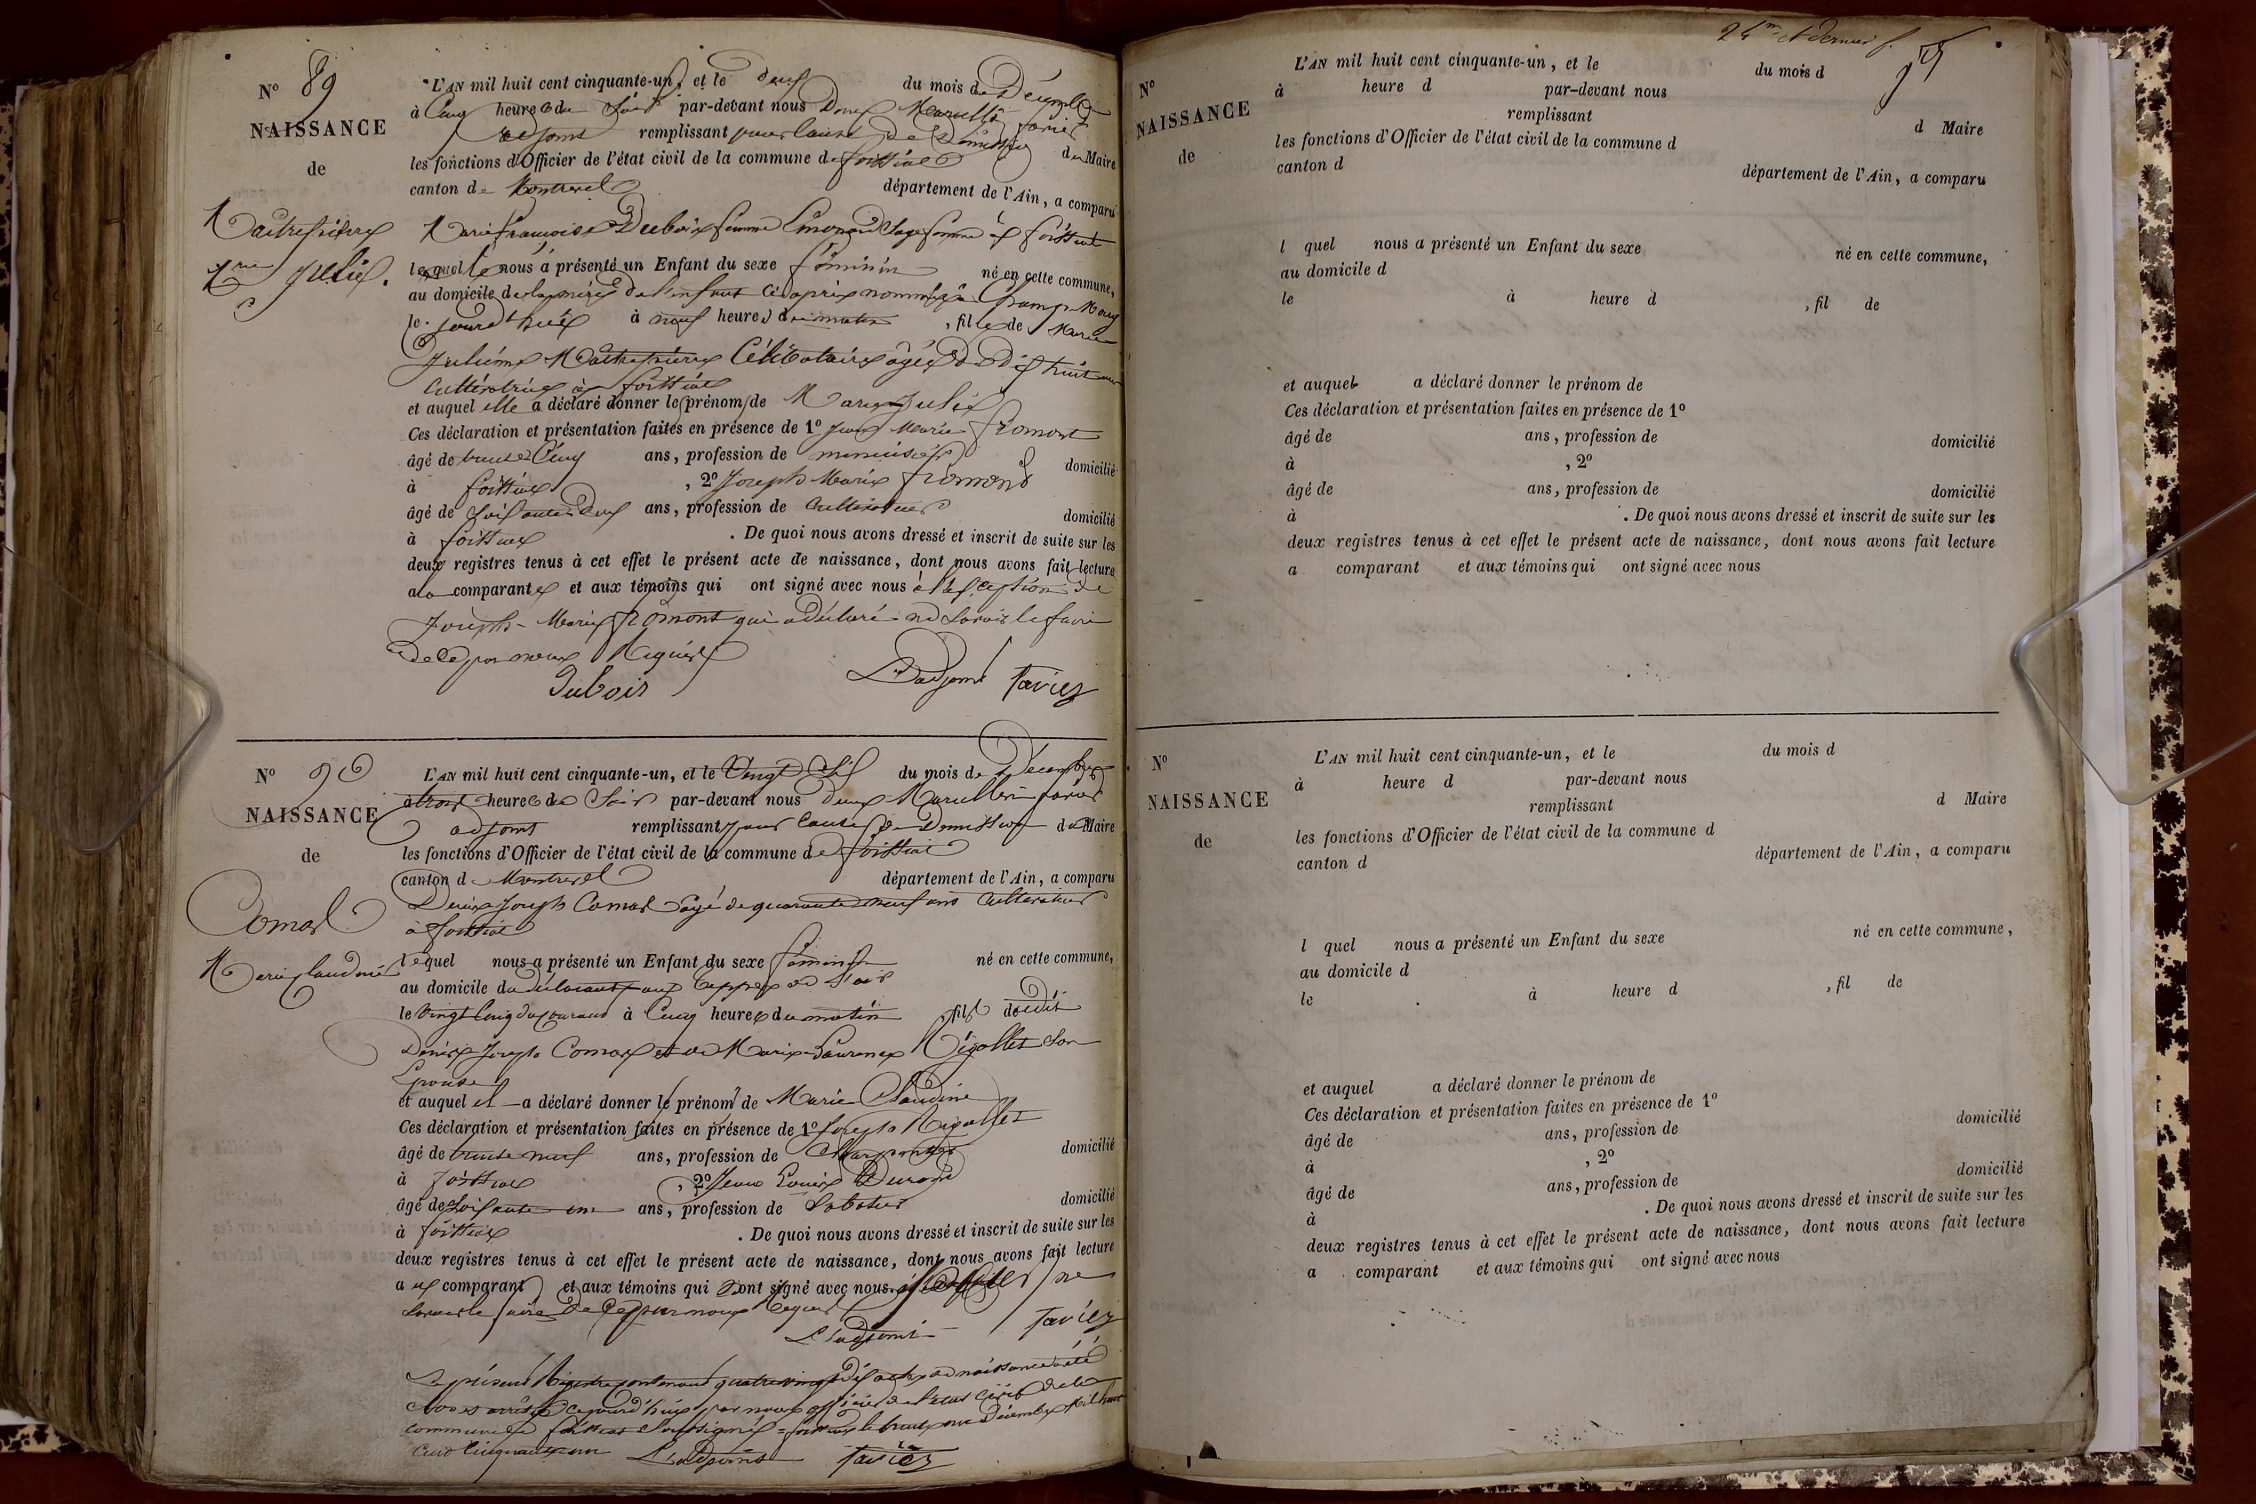 No 89
NAISSANCE
de
Maitrepierre
Mie Julie.
L'AN mil huit cent cinquante-un, et le deux du mois de Décembre
à Cinq heures du Soir par-devant nous Denis Marie favier
adjoint remplissant pour cause de Démission du Maire
les fonctions d'Officier de l'état civil de la commune de foissiat
canton de Montrevel département de l'Ain, a comparu
Marie françoise Dubois femme Sage femme à foissiat
laquelle nous a présenté un Enfant du sexe féminin né en cette commune,
au domicile de la mère de l'enfant Ci après nommée à
le jourd'hui à neuf heures du matin, fille de Marie
Julienne Maitrepierre Célibataire âgée de dix huit ans
Cultivatrice à foissiat
et auquel elle a déclaré donner les prénoms de Marie Julie
Ces déclaration et présentation faites en présence de 1º Jean Marie fromont
âgé de trente Cinq ans, profession de menuisier domicilié
à foissiat, 2º Joseph Marie fromont
âgé de Soixante deux ans, profession de Cultivateur domicilié
à foissiat. De quoi nous avons dressé et inscrit de suite sur les
deux registres tenus à cet effet le présent acte de naissance, dont nous avons fait lecture
à la comparante et aux témoins qui ont signé avec nous à l'exception de
Joseph-Marie fromont qui a déclaré ne Savoir le faire
de Ce par nous Requis
Dubois L'adjoint favier
No 90
NAISSANCE
de
Comas
Marie Claudine
L'AN mil huit cent cinquante-un, et le Vingt Six du mois de Décembre
à trois heures du Soir par-devant nous favier
adjoint remplissant pour Cause de Demission du Maire
les fonctions d'Officier de l'état civil de la commune de foissiat
canton de Montrevel département de l'Ain, a comparu
Denis Joseph Comas âgé de quarante neuf ans Cultivateur
à foissiat
lequel nous a présenté un Enfant du sexe féminin né en cette commune,
au domicile du déclarant
le Vingt Cinq du Courant à Cinq heures du matin, fille dudit
Denis Joseph Comas et de Marie Laurence Rigollet Son
Epouse
et auquel il a déclaré donner le prénom de Marie Claudine
Ces déclaration et présentation faites en présence de 1º Joseph Rigollet
âgé de trente neuf ans, profession de Charpentier domicilié
à foissiat, 2º Jean Louis Durand
âgé de Soixante un ans, profession de Sabotier domicilié
à foissiat. De quoi nous avons dressé et inscrit de suite sur les
deux registres tenus à cet effet le présent acte de naissance, dont nous avons fait lecture
aux comparant et aux témoins qui ont signé avec nous ne
Savoir le faire de Ce par nous Requis
L'adjoint favier
Le présent Registre contenant quatre vingt dix actes de naissance a été
Clos et arrêté Cejourd'hui par nous officier de l'état Civil de la
commune de foissiat Soussigné. foissiat le trente un Décembre Mil huit
Cent Cinquante un L'adjoint favier
24me et dernier f.
No
NAISSANCE
de
L'AN mil huit cent cinquante-un, et le du mois d
à heure d par-devant nous
remplissant d Maire
les fonctions d'Officier de l'état civil de la commune d
canton d département de l'Ain, a comparu
l quel nous a présenté un Enfant du sexe né en cette commune,
au domicile d
le à heure d , fil de
et auquel a déclaré donner le prénom de
Ces déclaration et présentation faites en présence de 1º
âgé de ans, profession de domicilié
à , 2º
âgé de ans, profession de domicilié
à . De quoi nous avons dressé et inscrit de suite sur les
deux registres tenus à cet effet le présent acte de naissance, dont nous avons fait lecture
a comparant et aux témoins qui ont signé avec nous
No
NAISSANCE
de
L'AN mil huit cent cinquante-un, et le du mois d
à heure d par-devant nous
remplissant d Maire
les fonctions d'Officier de l'état civil de la commune d
canton d département de l'Ain, a comparu
l quel nous a présenté un Enfant du sexe né en cette commune,
au domicile d
le à heure d , fil de
et auquel a déclaré donner le prénom de
Ces déclaration et présentation faites en présence de 1º
âgé de ans, profession de domicilié
à , 2º
âgé de ans, profession de domicilié
à . De quoi nous avons dressé et inscrit de suite sur les
deux registres tenus à cet effet le présent acte de naissance, dont nous avons fait lecture
a comparant et aux témoins qui ont signé avec nous